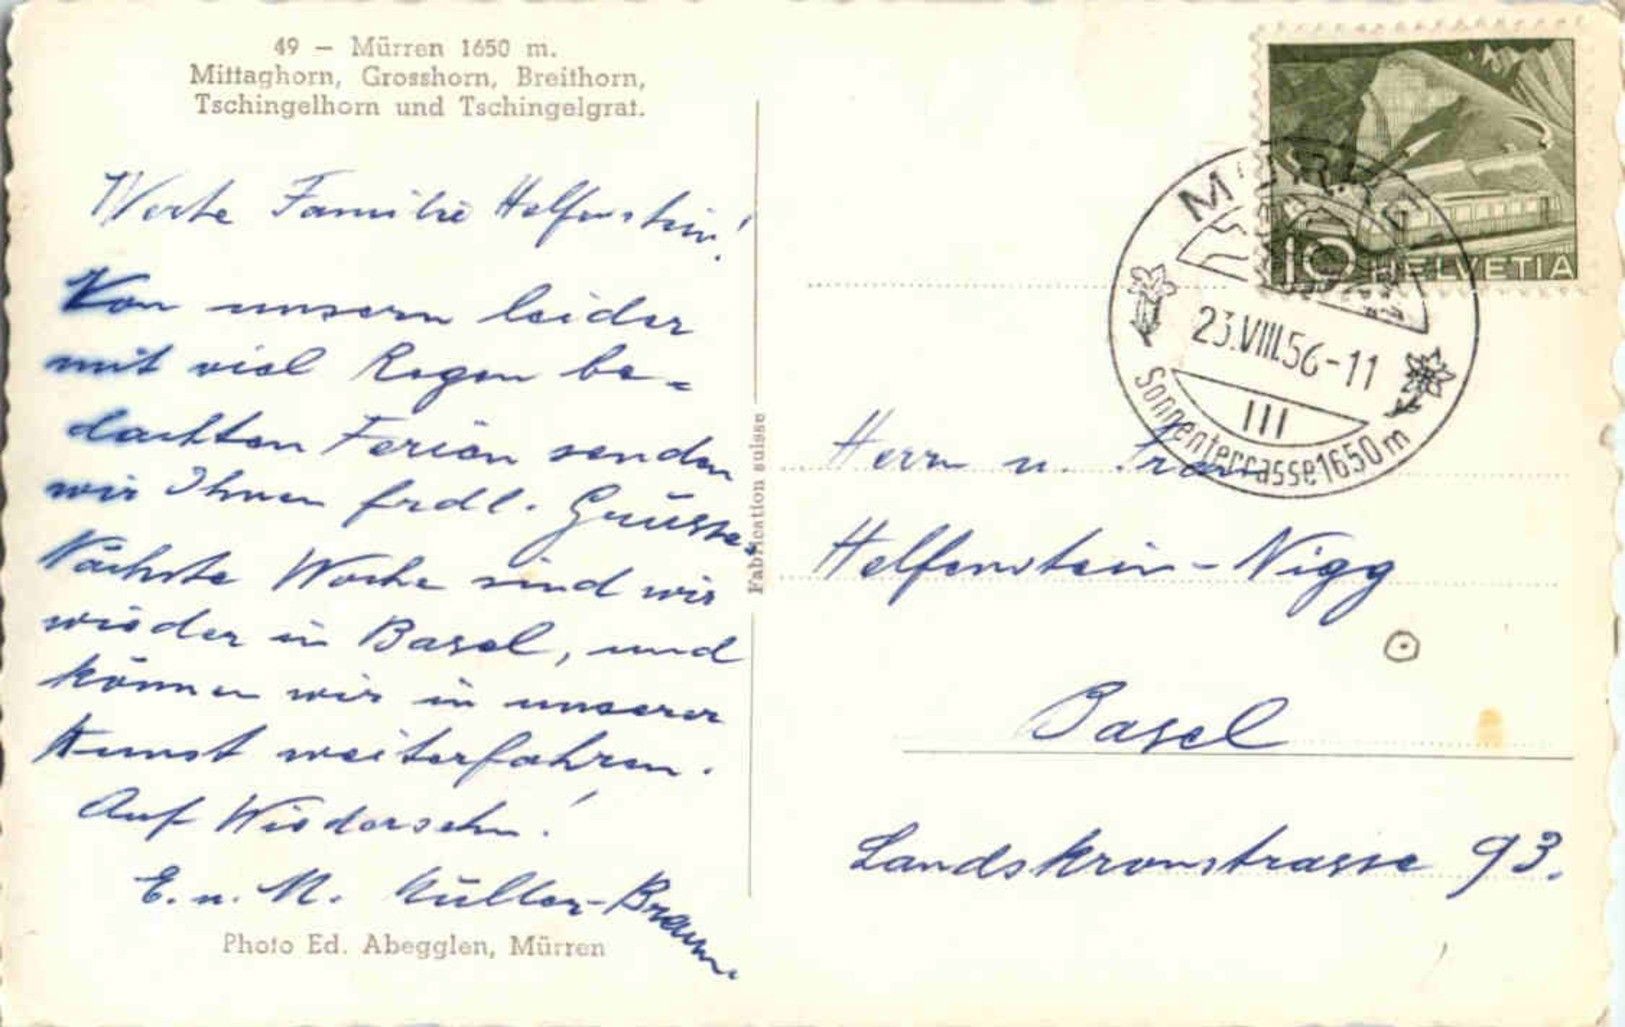 49 – Mürren 1650 m.
Mittaghorn, Grosshorn, Breithorn,
Tschingelhorn und Tschingelgrat.
Werte Familie Helfenstein!
Von unsern leider
mit viel Regen be-
dachten Ferien senden
wir Ihnen frdl. Grüsse.
Nächste Woche sind wir
wieder in Basel, und
können wir in unserer
Kunst weiterfahren.
Auf Wiedersehn!
E. u. M. Müller-Braun.
Photo Ed. Abegglen, Mürren
Fabrication suisse
10 HELVETIA
MÜRREN
23.VIII.56-11
III
Sonnenterrasse 1650 m
Herrn u. Frau
Helfenstein-Nigg
Basel
Landskronstrasse 93.